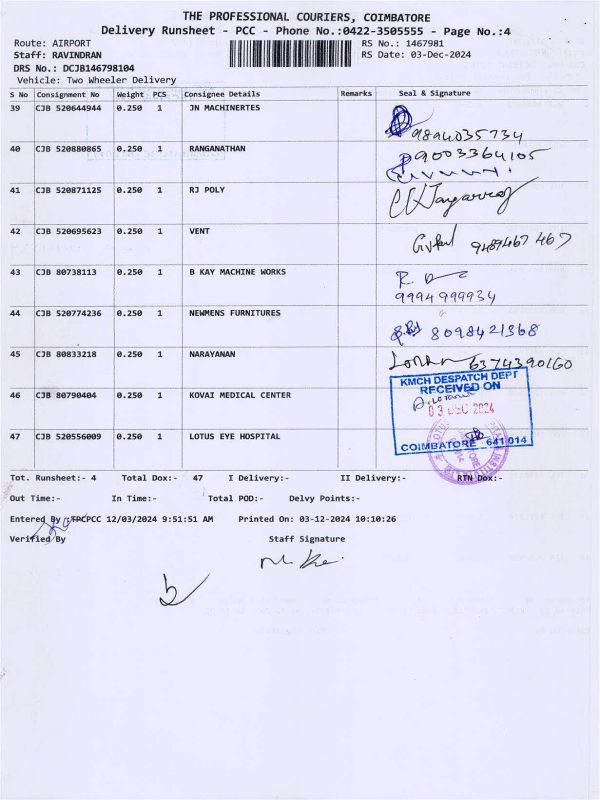 THE PROFESSIONAL COURIERS, COIMBATORE
Delivery Runsheet - PCC - Phone No.:0422-3505555 - Page No.:4
Route: AIRPORT RS No.: 1467981
Staff: RAVINDRAN RS Date: 03-Dec-2024
DRS No.: DCJB146798104
Vehicle: Two Wheeler Delivery
S No Consignment No Weight PCS Consignee Details Remarks Seal & Signature
39 CJB 520644944 0.250 1 JN MACHINERTES
9894035734
40 CJB 520880865 0.250 1 RANGANATHAN 9003364105
41 CJB 520871125 0.250 1 RJ POLY
42 CJB 520695623 0.250 1 VENT 9489467467
43 CJB 80738113 0.250 1 B KAY MACHINE WORKS
9994999934
44 CJB 520774236 0.250 1 NEWMENS FURNITURES
8098421368
45 CJB 80833218 0.250 1 NARAYANAN 6374390160
KMCH DESPATCH DEPT
RECEIVED ON
46 CJB 80790404 0.250 1 KOVAI MEDICAL CENTER
03 DEC 2024
47 CJB 520556009 0.250 1 LOTUS EYE HOSPITAL
COIMBATORE 641 014
Tot. Runsheet:- 4 Total Dox:- 47 I Delivery:- II Delivery:- RTN Dox:-
Out Time:- In Time:- Total POD:- Delvy Points:-
Entered By :TPCPCC 12/03/2024 9:51:51 AM Printed On: 03-12-2024 10:10:26
Verified By Staff Signature